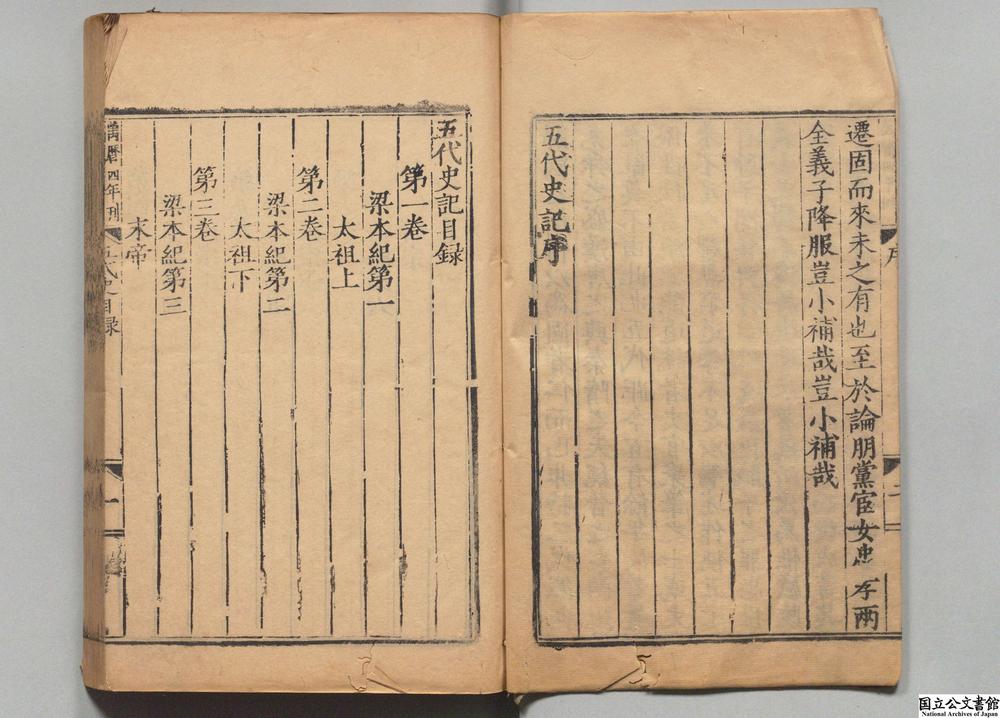 遷固而來未之有也至於論朋黨宦女忠孝兩
全義子降服豈小補哉豈小補哉
五代史記序
序
二
五代史記目録
第一卷
梁本紀第一
太祖上
第二卷
梁本紀第二
太祖下
第三卷
梁本紀第三
末帝
萬曆四年刊
五代史目録
一
国立公文書館
National Archives of Japan